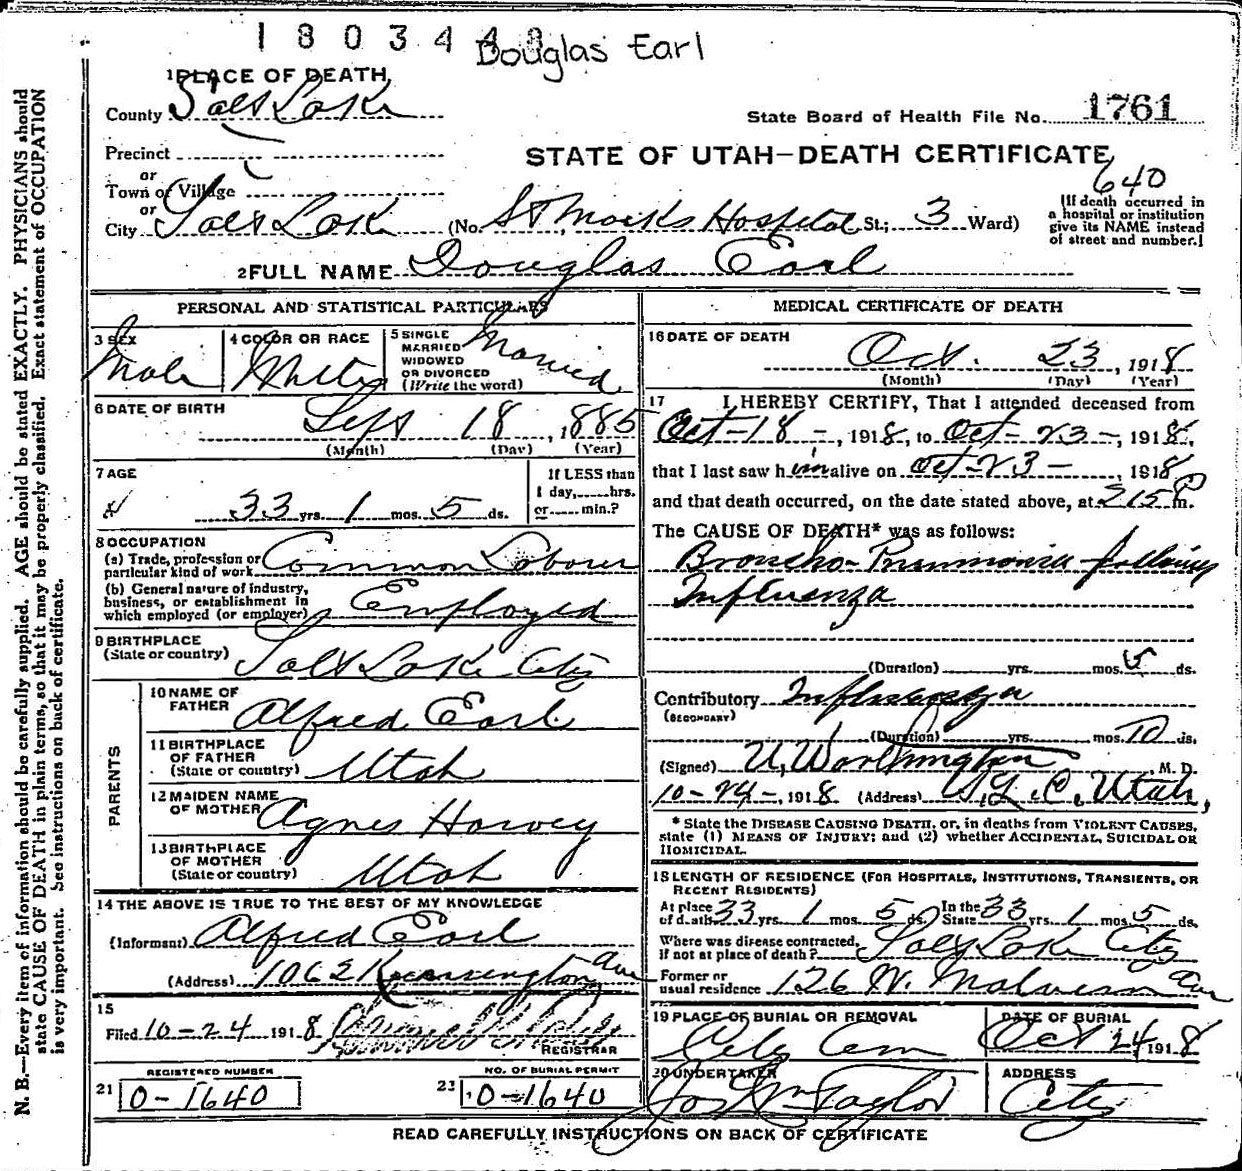 1803448
Douglas Earl
1 PLACE OF DEATH
County Salt Lake
State Board of Health File No. 1761
Precinct
or
Town or Village
STATE OF UTAH—DEATH CERTIFICATE
640
or
City Salt Lake (No. St Marks Hospital St.; 3 Ward)
[If death occurred in
a hospital or institution
give its NAME instead
of street and number.]
2 FULL NAME Douglas Earl
PERSONAL AND STATISTICAL PARTICULARS
3 SEX
Male
4 COLOR OR RACE
White
5 SINGLE
MARRIED
WIDOWED
OR DIVORCED
(Write the word)
Married
6 DATE OF BIRTH
Sept 18, 1885
(Month) (Day) (Year)
7 AGE
33 yrs. 1 mos. 5 ds.
If LESS than
1 day, hrs.
or min.?
8 OCCUPATION
(a) Trade, profession or
particular kind of work Common Laborer
(b) General nature of industry,
business, or establishment in
which employed (or employer) Employed
9 BIRTHPLACE
(State or country) Salt Lake City
PARENTS
10 NAME OF
FATHER Alfred Earl
11 BIRTHPLACE
OF FATHER
(State or country) Utah
12 MAIDEN NAME
OF MOTHER Agnes Harvey
13 BIRTHPLACE
OF MOTHER
(State or country) Utah
14 THE ABOVE IS TRUE TO THE BEST OF MY KNOWLEDGE
(Informant) Alfred Earl
(Address) 1062 Kensington Ave
15
Filed 10-24 1918
REGISTRAR
REGISTERED NUMBER
21 0-1640
NO. OF BURIAL PERMIT
23 0-1640
MEDICAL CERTIFICATE OF DEATH
16 DATE OF DEATH
Oct. 23, 1918
(Month) (Day) (Year)
17 I HEREBY CERTIFY, That I attended deceased from
Oct-18-, 1918, to Oct-23-, 1918,
that I last saw him alive on Oct-23-, 1918
and that death occurred, on the date stated above, at 215 P m.
The CAUSE OF DEATH* was as follows:
Broncho-Pneumonia following
Influenza
(Duration) yrs. mos. 5 ds.
Contributory Influenza
(SECONDARY)
(Duration) yrs. mos. 10 ds.
(Signed) U, Worthington M. D.
10-24-, 1918 (Address) S. L. C, Utah,
* State the DISEASE CAUSING DEATH, or, in deaths from VIOLENT CAUSES,
state (1) MEANS OF INJURY; and (2) whether ACCIDENTAL, SUICIDAL OR
HOMICIDAL.
18 LENGTH OF RESIDENCE (FOR HOSPITALS, INSTITUTIONS, TRANSIENTS, OR
RECENT RESIDENTS)
At place
of death 33 yrs. 1 mos. 5 ds.
In the
State 33 yrs. 1 mos. 5 ds.
Where was disease contracted,
if not at place of death? Salt Lake City
Former or
usual residence 126 W. Malvern Ave
19 PLACE OF BURIAL OR REMOVAL
City Cem
DATE OF BURIAL
Oct 24 1918
20 UNDERTAKER
Jos Wm Taylor
ADDRESS
City
READ CAREFULLY INSTRUCTIONS ON BACK OF CERTIFICATE
N. B.—Every item of information should be carefully supplied. AGE should be stated EXACTLY. PHYSICIANS should
state CAUSE OF DEATH in plain terms, so that it may be properly classified. Exact statement of OCCUPATION
is very important. See instructions on back of certificate.